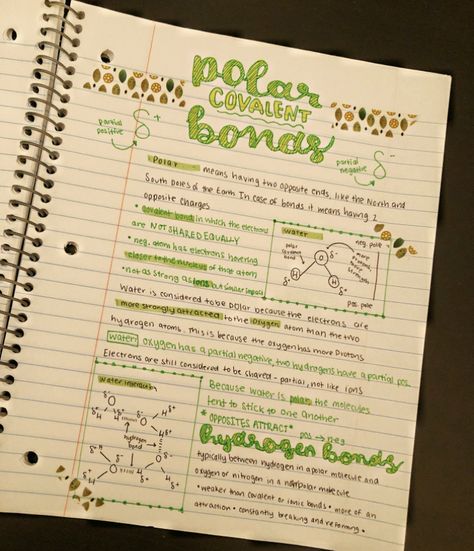 polar
COVALENT
bonds
partial
positive
δ+
partial
negative
δ-
Polar - means having two opposite ends, like the North and
South poles of the Earth. In case of bonds it means having 2
opposite charges
• covalent bond in which the electrons
are NOT SHARED EQUALLY
• neg. atom has electrons hovering
closer to the nucleus of that atom
• not as strong as ions but similar impact
water
neg. pole
polar
covalent
bond
O
δ-
H
H
δ+
δ+
more
pos. pole
Water is considered to be polar because the electrons are
more strongly attracted to the oxygen atom than the two
hydrogen atoms. This is because the oxygen has more protons
water: oxygen has a partial negative, two hydrogens have a partial pos.
Electrons are still considered to be shared - partial, not like ions
water interaction
hydrogen
bonds
Because water is polar the molecules
tend to stick to one another
*OPPOSITES ATTRACT* pos → neg
hydrogen bonds
typically between hydrogen in a polar molecule and
oxygen or nitrogen in a nonpolar molecule
• weaker than covalent or ionic bonds • more of an
attraction • constantly breaking and reforming •